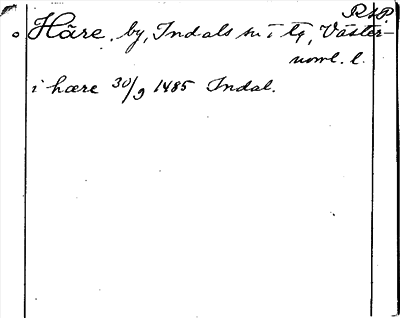 RAP.
Häre, by, Indals sn i tg, Väster-
norrl. l.
i hære 30/9 1485 Indal.